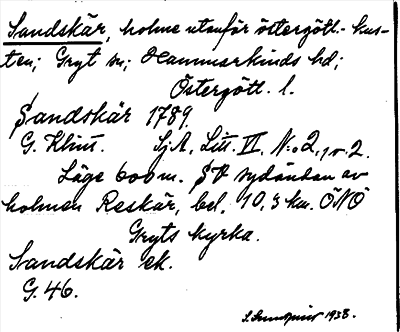 Sandskär, holme utanför östergötl.- kus-
ten; Gryt sn; Hammarkinds hd;
Östergötl. l.
Sandskär 1789.
G. Klint. Sj.A. Litt. VI. N:o 2, 1 o. 2.
Läge 600 m. SV sydändan av
holmen Reskär, bel. 10,3 km. ÖNÖ
Gryts kyrka.
Sandskär ek.
G. 46.
S. Lundqvist 1938.